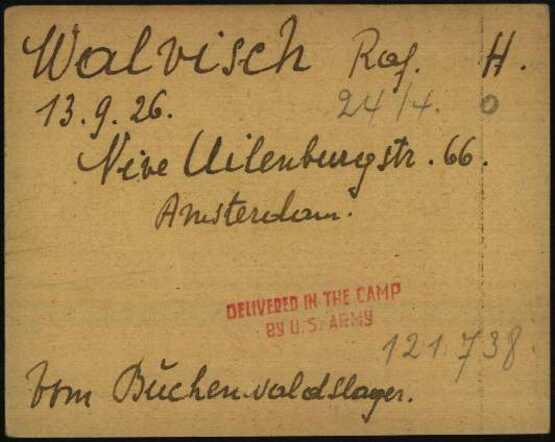 Walvisch Raf. H.
13.9.26. 24/4. O
Nive Uilenburgstr. 66.
Amsterdam.
DELIVERED IN THE CAMP
BY U.S. ARMY
121.738
Vom Buchenwaldslager.